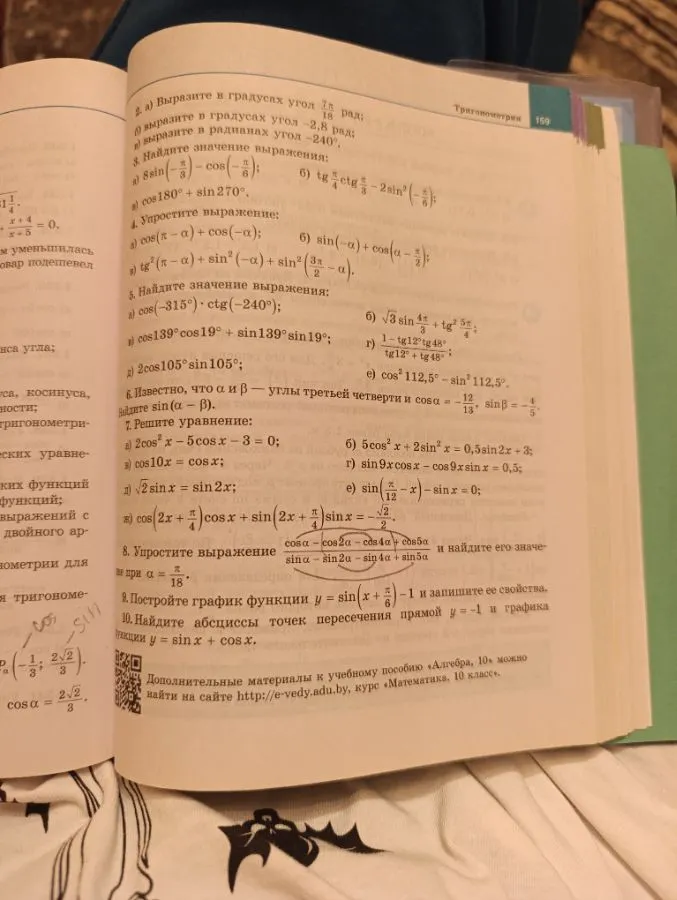 Тригонометрия 159
2. а) Выразите в градусах угол 7π/18 рад;
б) выразите в градусах угол −2,8 рад;
в) выразите в радианах угол −240°.
3. Найдите значение выражения:
а) 8sin(−π/3) − cos(−π/6); б) tg π/4 ctg π/3 − 2sin²(−π/6);
в) cos180° + sin270°.
4. Упростите выражение:
а) cos(π − α) + cos(−α); б) sin(−α) + cos(α − π/2);
в) tg²(π − α) + sin²(−α) + sin²(3π/2 − α).
5. Найдите значение выражения:
а) cos(−315°) · ctg(−240°); б) √3 sin 4π/3 + tg² 5π/4;
в) cos139°cos19° + sin139°sin19°; г) (1 − tg12°tg48°)/(tg12° + tg48°);
д) 2cos105°sin105°; е) cos²112,5° − sin²112,5°.
6. Известно, что α и β — углы третьей четверти и cosα = −12/13, sinβ = −4/5.
Найдите sin(α − β).
7. Решите уравнение:
а) 2cos²x − 5cosx − 3 = 0; б) 5cos²x + 2sin²x = 0,5sin2x + 3;
в) cos10x = cosx; г) sin9xcosx − cos9xsinx = 0,5;
д) √2 sinx = sin2x; е) sin(π/12 − x) − sinx = 0;
ж) cos(2x + π/4)cosx + sin(2x + π/4)sinx = −√2/2.
8. Упростите выражение (cosα − cos2α − cos4α + cos5α)/(sinα − sin2α − sin4α + sin5α) и найдите его значе-
ние при α = π/18.
9. Постройте график функции y = sin(x + π/6) − 1 и запишите ее свойства.
10. Найдите абсциссы точек пересечения прямой y = −1 и графика
функции y = sinx + cosx.
Дополнительные материалы к учебному пособию «Алгебра, 10» можно
найти на сайте http://e-vedy.adu.by, курс «Математика, 10 класс».
1/4.
x+4/x+5 = 0.
м уменьшилась
овар подешевел
нса угла;
уса, косинуса,
ности;
тригонометри-
еских уравне-
ких функций
функций;
выражений с
двойного ар-
нометрии для
я тригономе-
cos
sin
(−1/3; 2√2/3).
cosα = 2√2/3.